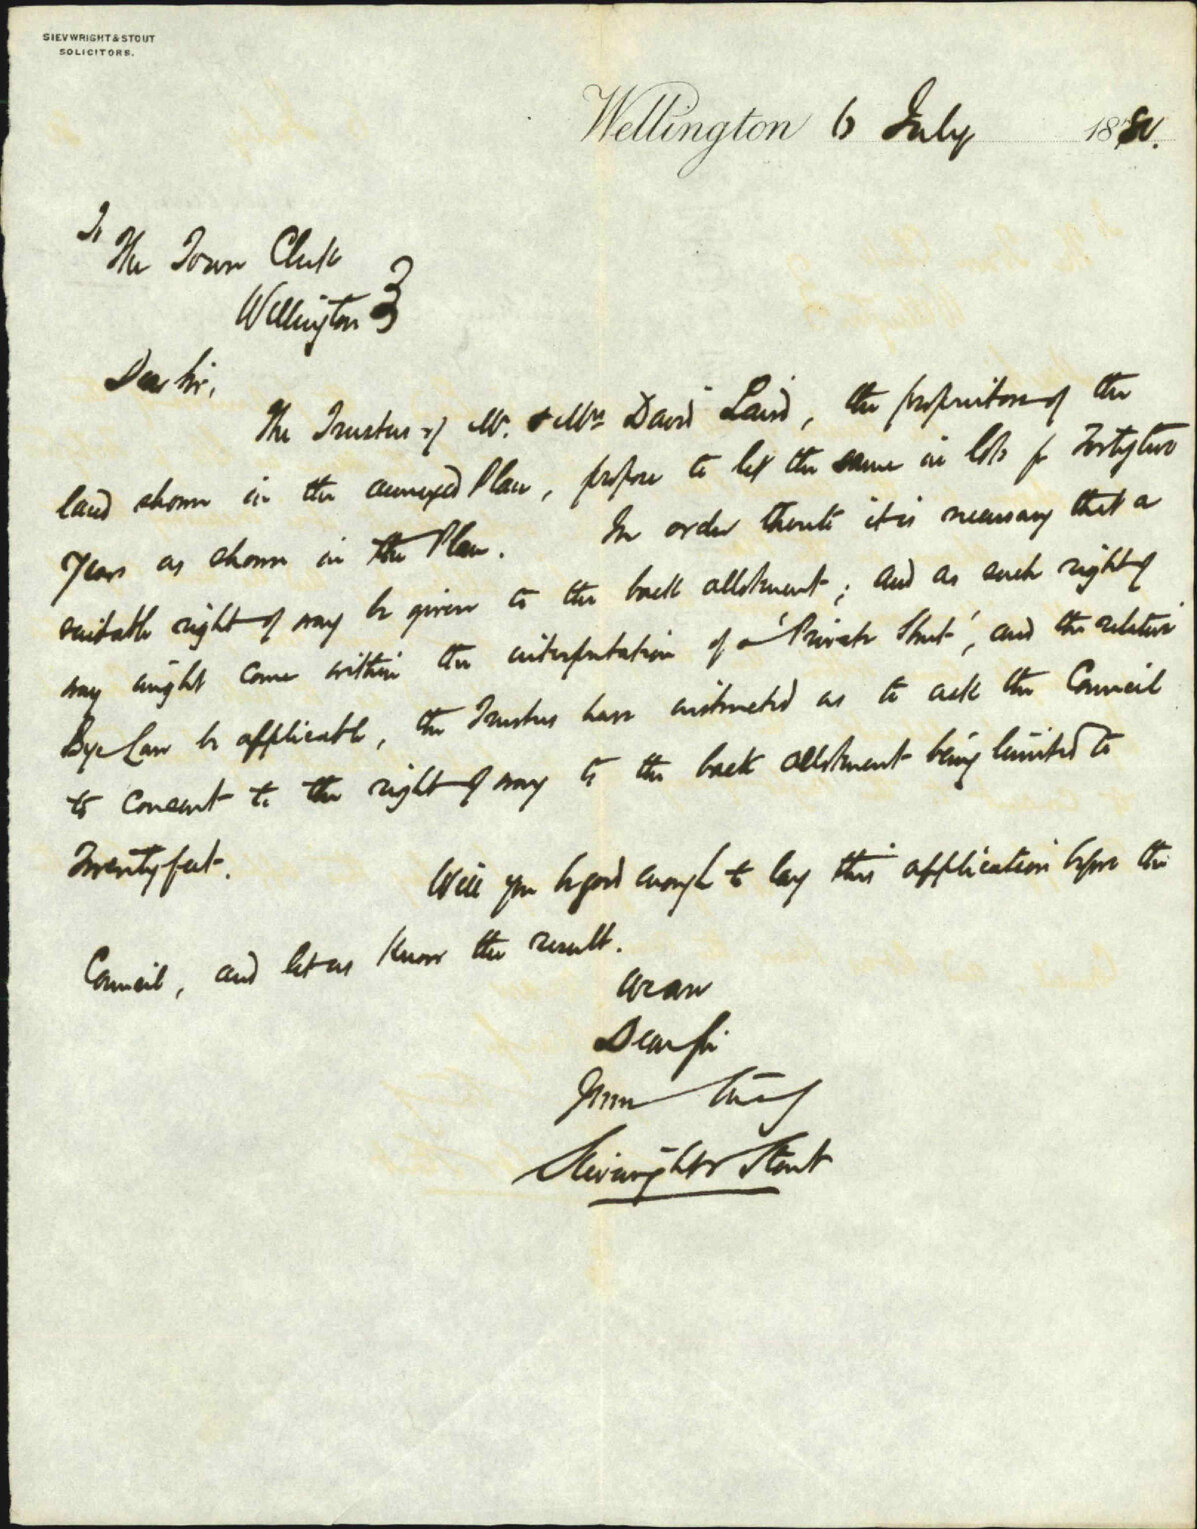 SIEVWRIGHT & STOUT
SOLICITORS.
Wellington 6 July 1880.
To
The Town Clerk
Wellington }
Dear Sir,
The Trustees of Mr. & Mrs David Laird, the proprietors of the
land shown in the annexed Plan, propose to let the same in lots for Fortytwo
Years as shown in the Plan. In order thereto it is necessary that a
suitable right of way be given to the back allotment; and as such right of
way might come within the interpretation of a 'Private Street', and the relative
Bye-Law be applicable, the Trustees have instructed us to ask the Council
to consent to the right of way to the back allotment being limited to
Twenty feet.
Will you be good enough to lay this application before the
Council, and let us know the result.
We are
Dear Sir
Yours truly
Sievwright & Stout